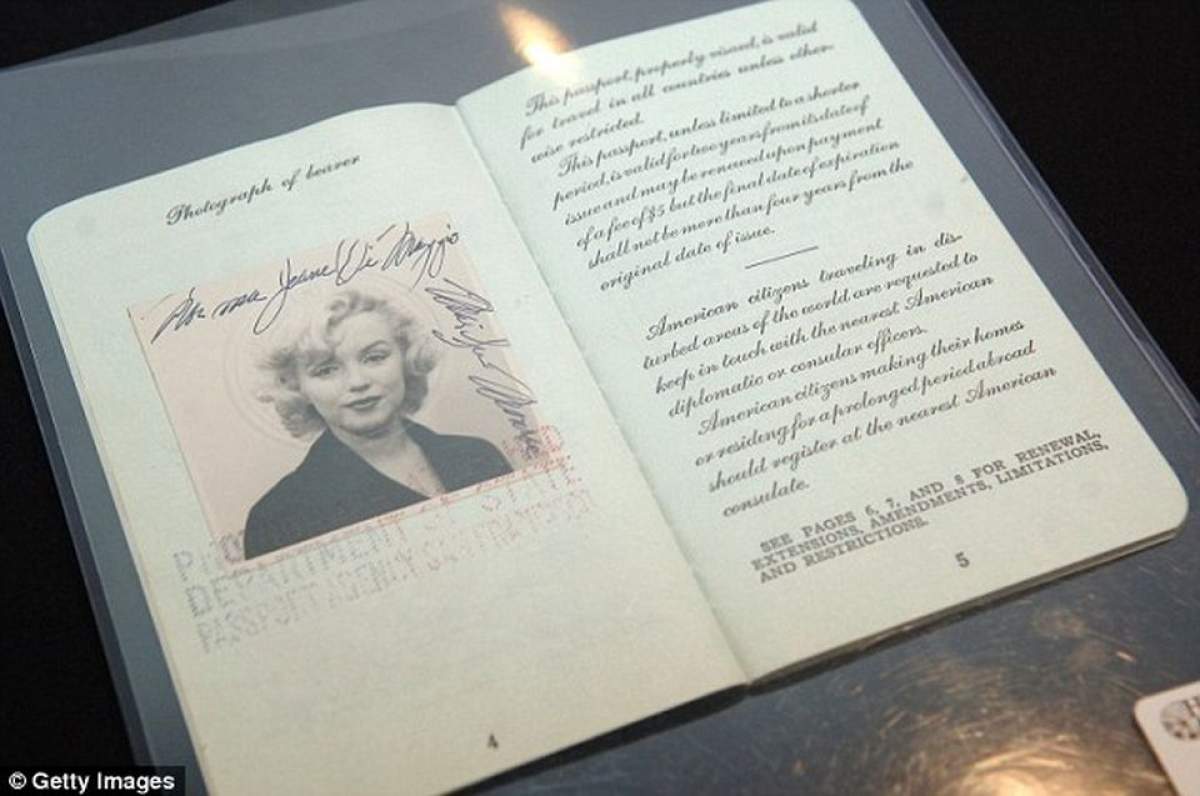 Photograph of bearer
Norma Jeane Di Maggio
Marilyn Monroe
DEPARTMENT OF STATE
PASSPORT AGENCY
4
This passport, properly visaed, is valid
for travel in all countries unless other-
wise restricted.
This passport, unless limited to a shorter
period, is valid for two years from its date of
issue and may be renewed upon payment
of a fee of $5 but the final date of expiration
shall not be more than four years from the
original date of issue.
American citizens traveling in dis-
turbed areas of the world are requested to
keep in touch with the nearest American
diplomatic or consular officers.
American citizens making their homes
or residing for a prolonged period abroad
should register at the nearest American
consulate.
SEE PAGES 6, 7, AND 8 FOR RENEWAL,
EXTENSIONS, AMENDMENTS, LIMITATIONS,
AND RESTRICTIONS.
5
© Getty Images